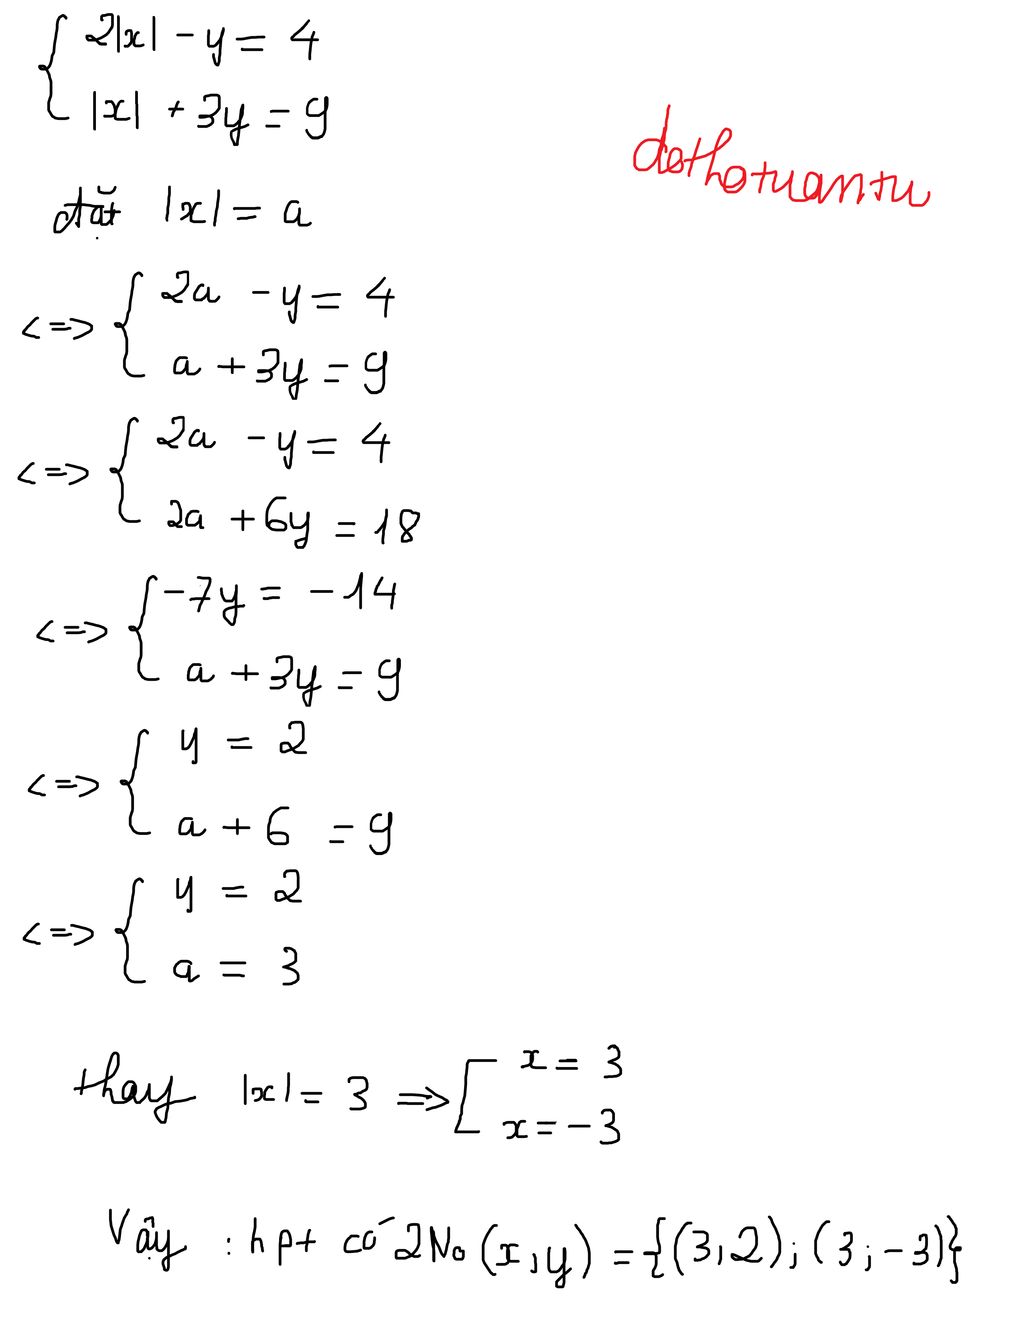 2|x| - y = 4
|x| + 3y = 9
dothotuantu
đặt |x| = a
<=> { 2a - y = 4
a + 3y = 9
<=> { 2a - y = 4
2a + 6y = 18
<=> { -7y = -14
a + 3y = 9
<=> { y = 2
a + 6 = 9
<=> { y = 2
a = 3
thay |x| = 3 => [ x = 3
x = -3
Vậy : hpt có 2 No (x,y) = {(3,2);(3;-3)}